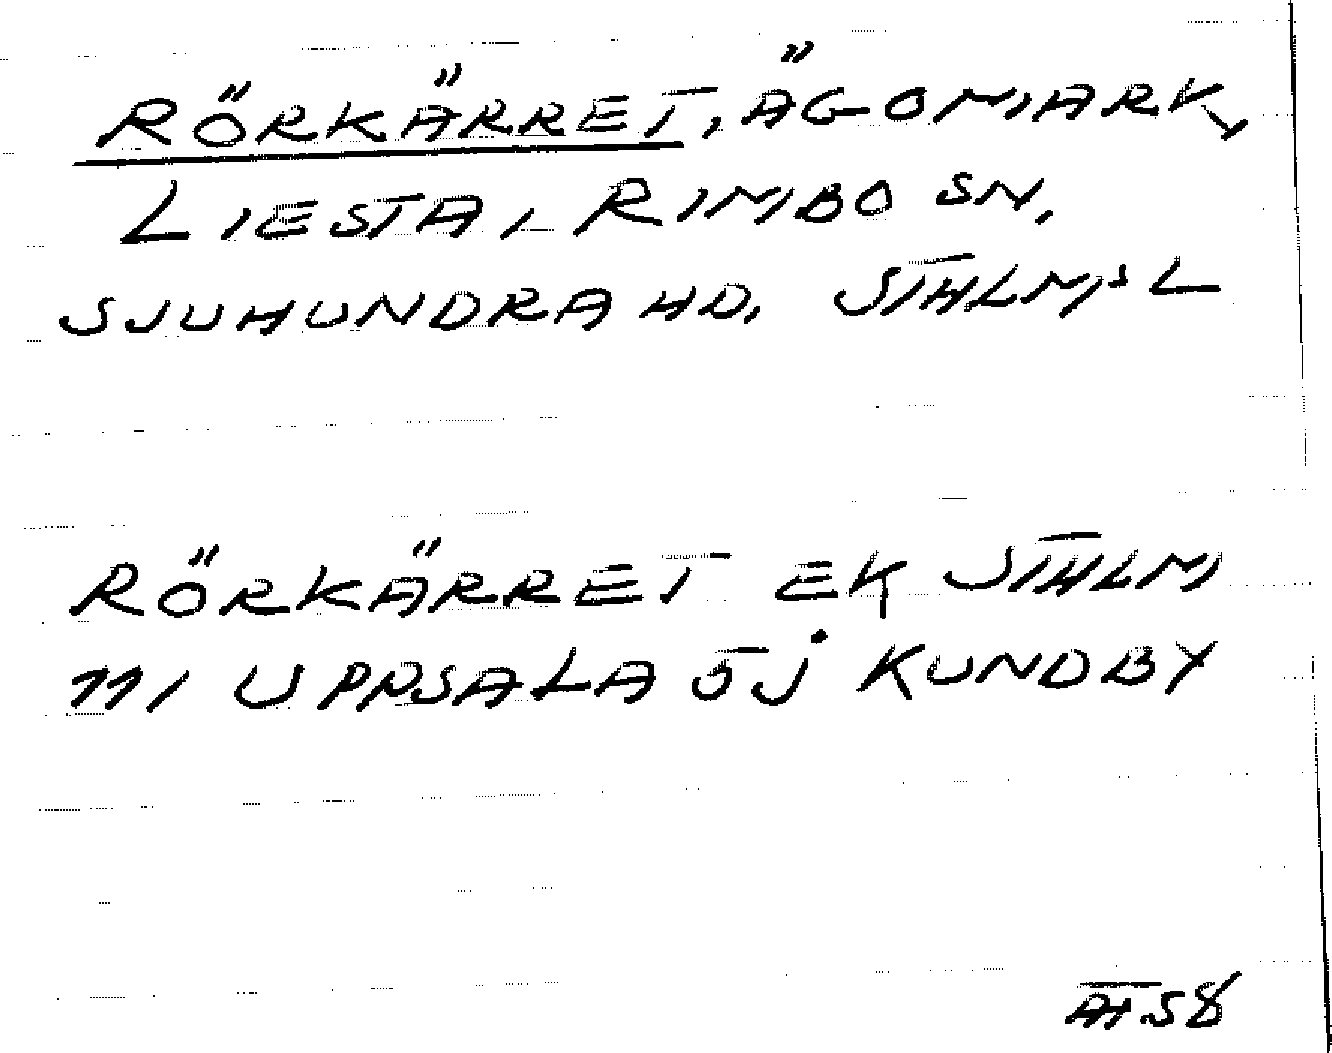 RÖRKÄRRET, ÄGOMARK,
LIESTA, RIMBO SN,
SJUHUNDRA HD, STHLMS L
RÖRKÄRRET EK STHLM
111 UPPSALA 5J KUNDBY
AT 58